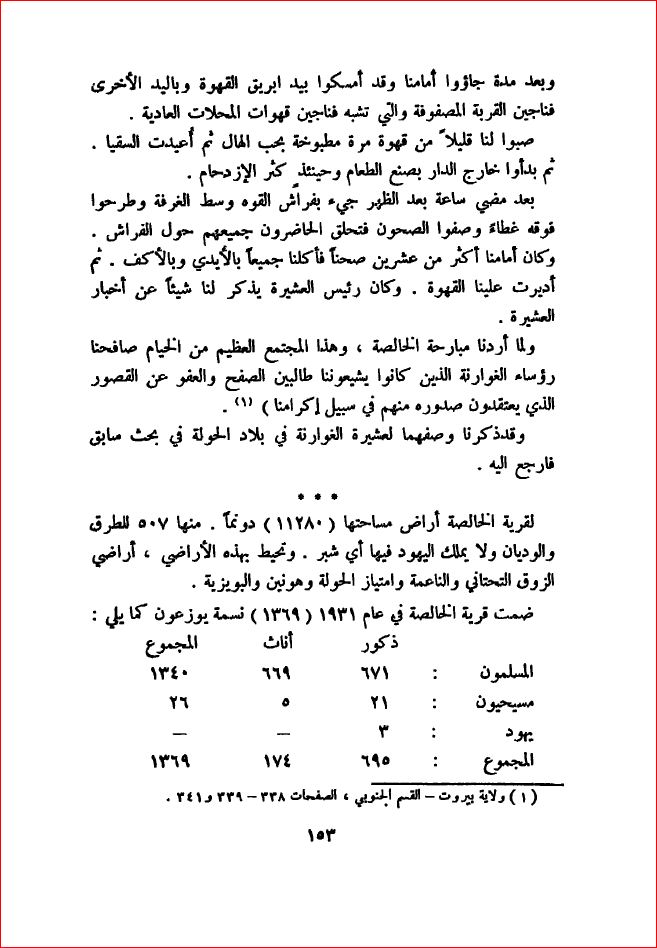 وبعد مدة جاؤوا أمامنا وقد أمسكوا بيد ابريق القهوة وباليد الأخرى
فناجين القربة المصفوفة والتي تشبه فناجين قهوات المحلات العادية .
صبوا لنا قليلاً من قهوة مرة مطبوخة بحب الهال ثم أعيدت السقيا .
ثم بدأوا خارج الدار بصنع الطعام وحينئذ كثر الإزدحام .
بعد مضي ساعة بعد الظهر جيء بفراش القوه وسط الغرفة وطرحوا
فوقه غطاءً وصفوا الصحون فتحلق الحاضرون جميعهم حول الفراش .
وكان أمامنا أكثر من عشرين صحناً فأكلنا جميعاً بالأيدي وبالأكف . ثم
أديرت علينا القهوة . وكان رئيس العشيرة يذكر لنا شيئاً عن أخبار
العشيرة .
ولما أردنا مبارحة الخالصة ، وهذا المجتمع العظيم من الخيام صافحنا
رؤساء الغوارنة الذين كانوا يشيعوننا طالبين الصفح والعفو عن القصور
الذي يعتقدون صدوره منهم في سبيل إكرامنا ) (١) .
وقدذكرنا وصفهما لعشيرة الغوارنة في بلاد الحولة في بحث سابق
فارجع اليه .
* * *
لقرية الخالصة أراض مساحتها ( ١١٢٨٠ ) دونماً . منها ٥٠٧ للطرق
والوديان ولا يملك اليهود فيها أي شبر . وتحيط بهذه الأراضي ، أراضي
الزوق التحتاني والناعمة وامتياز الحولة وهونين والبويزية .
ضمت قرية الخالصة في عام ١٩٣١ ( ١٣٦٩ ) نسمة يوزعون كما يلي :
ذكور أناث المجموع
المسلمون : ٦٧١ ٦٦٩ ١٣٤٠
مسيحيون : ٢١ ٥ ٢٦
يهود : ٣ — —
المجموع : ٦٩٥ ١٧٤ ١٣٦٩
( ١ ) ولاية بيروت – القسم الجنوبي ، الصفحات ٣٣٨ – ٣٣٩ و٣٤١ .
١٥٣